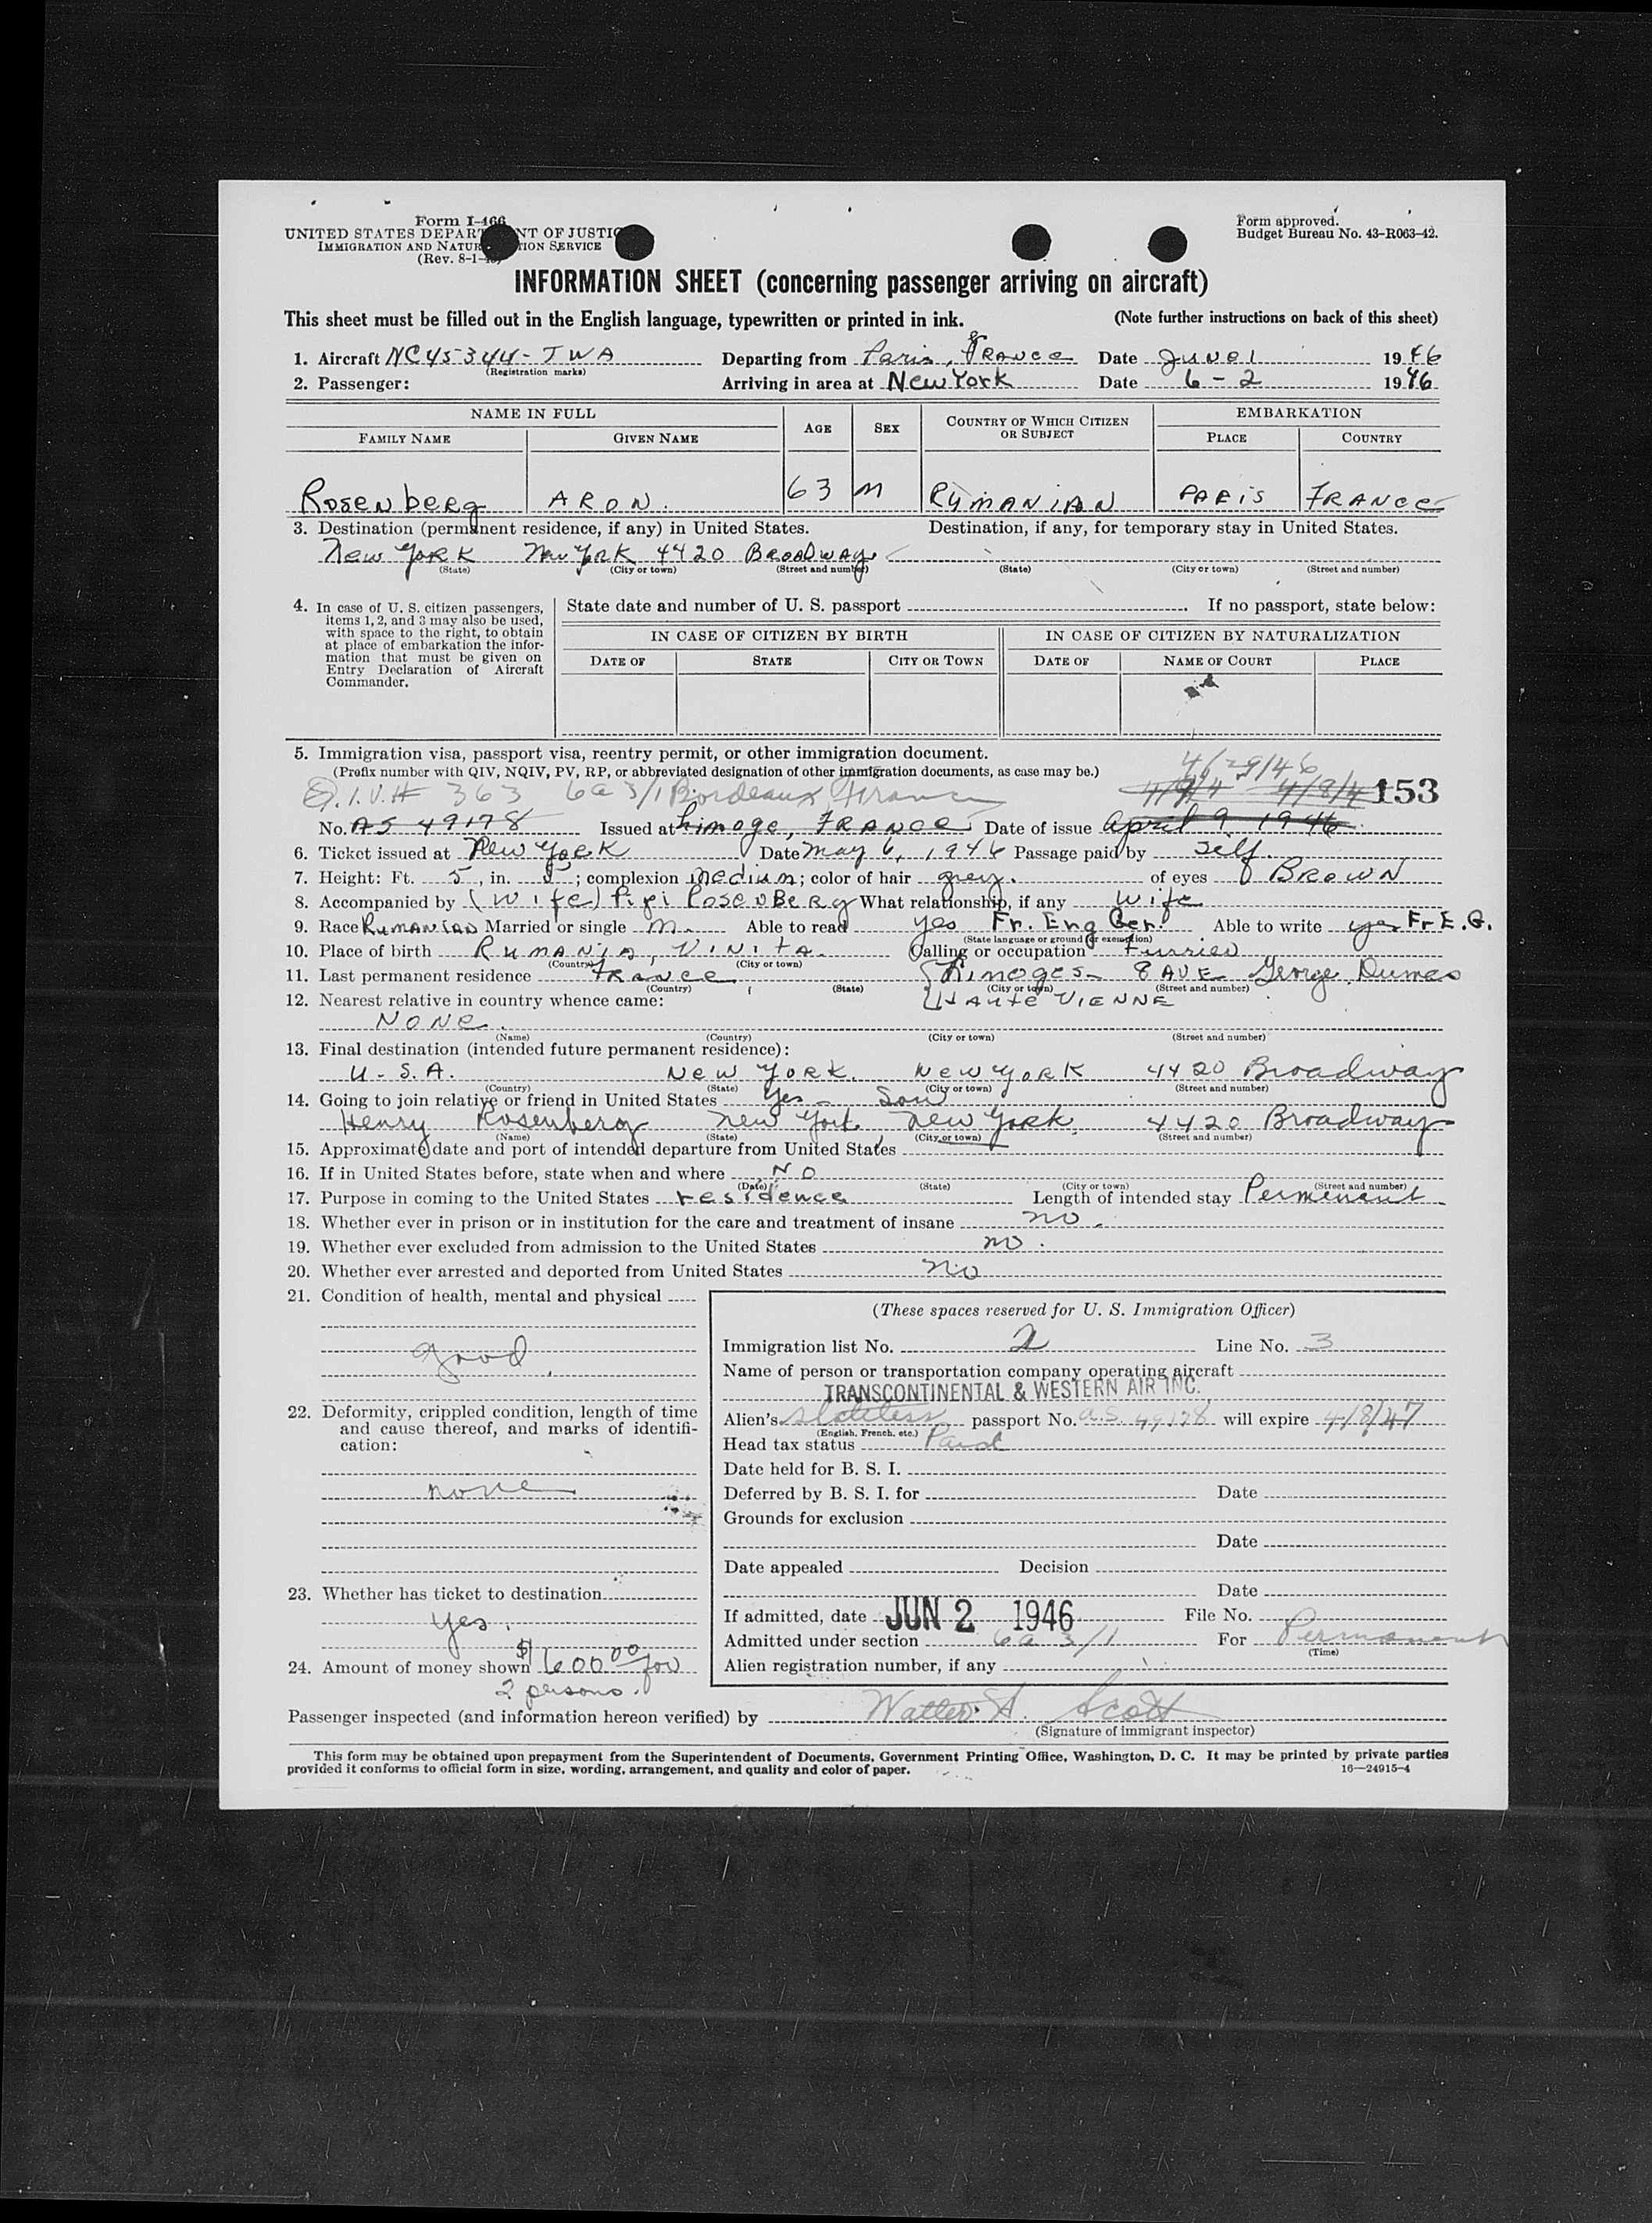 Form I-466
UNITED STATES DEPARTMENT OF JUSTICE
IMMIGRATION AND NATURALIZATION SERVICE
(Rev. 8-1-
Form approved.
Budget Bureau No. 43-R063-42.
INFORMATION SHEET (concerning passenger arriving on aircraft)
This sheet must be filled out in the English language, typewritten or printed in ink. (Note further instructions on back of this sheet)
1. Aircraft NC45344-TWA Departing from Paris, FRANCE Date June 1 1946
(Registration marks)
2. Passenger: Arriving in area at New York Date 6-2 1946
NAME IN FULL AGE SEX COUNTRY OF WHICH CITIZEN OR SUBJECT EMBARKATION
FAMILY NAME GIVEN NAME PLACE COUNTRY
Rosenberg ARON. 63 M RUMANIAN PARIS FRANCE
3. Destination (permanent residence, if any) in United States. Destination, if any, for temporary stay in United States.
New York New York 4420 Broadway
(State) (City or town) (Street and number) (State) (City or town) (Street and number)
4. In case of U. S. citizen passengers, items 1, 2, and 3 may also be used, with space to the right, to obtain at place of embarkation the information that must be given on Entry Declaration of Aircraft Commander.
State date and number of U. S. passport If no passport, state below:
IN CASE OF CITIZEN BY BIRTH IN CASE OF CITIZEN BY NATURALIZATION
DATE OF STATE CITY OR TOWN DATE OF NAME OF COURT PLACE
5. Immigration visa, passport visa, reentry permit, or other immigration document.
(Prefix number with QIV, NQIV, PV, RP, or abbreviated designation of other immigration documents, as case may be.) 4/29/46
Q.I.V.# 363 6a 3/1 Bordeaux France 153
No. AS 49178 Issued at Limoge, FRANCE Date of issue April 9 1946
6. Ticket issued at New York Date May 6, 1946 Passage paid by self.
7. Height: Ft. 5, in. 5; complexion medium; color of hair grey. of eyes BROWN
8. Accompanied by (Wife) Pipi Rosenberg What relationship, if any wife
9. Race RUMANIAN Married or single M. Able to read yes Fr. Eng Ger. Able to write yes Fr E. G.
(State language or ground for exemption)
10. Place of birth Rumania, Vinita. Calling or occupation Furrier
(Country) (City or town)
11. Last permanent residence France Limoges - 8 AVE George Dumas
(Country) (State) (City or town) (Street and number)
HAUTE VIENNE
12. Nearest relative in country whence came:
NONE.
(Name) (Country) (City or town) (Street and number)
13. Final destination (intended future permanent residence):
U.S.A. New York. New York 4420 Broadway
(Country) (State) (City or town) (Street and number)
14. Going to join relative or friend in United States Yes - Son
Henry Rosenberg New York New York, 4420 Broadway
(Name) (State) (City or town) (Street and number)
15. Approximate date and port of intended departure from United States
16. If in United States before, state when and where NO
(Date) (State) (City or town) (Street and number)
17. Purpose in coming to the United States residence Length of intended stay Permenent
18. Whether ever in prison or in institution for the care and treatment of insane no.
19. Whether ever excluded from admission to the United States no.
20. Whether ever arrested and deported from United States no
21. Condition of health, mental and physical
good
22. Deformity, crippled condition, length of time and cause thereof, and marks of identification:
none
23. Whether has ticket to destination
yes.
24. Amount of money shown $1600.00 for
2 persons.
(These spaces reserved for U. S. Immigration Officer)
Immigration list No. 2 Line No. 3
Name of person or transportation company operating aircraft
TRANSCONTINENTAL & WESTERN AIR INC.
Alien's stateless passport No. A.S. 49178 will expire 4/8/47
(English, French, etc.)
Head tax status Paid
Date held for B. S. I.
Deferred by B. S. I. for Date
Grounds for exclusion
Date
Date appealed Decision
Date
If admitted, date JUN 2 1946 File No.
Admitted under section 6a 3/1 For Permanent
(Time)
Alien registration number, if any
Passenger inspected (and information hereon verified) by Walter A. Scott
(Signature of immigrant inspector)
This form may be obtained upon prepayment from the Superintendent of Documents, Government Printing Office, Washington, D. C. It may be printed by private parties
provided it conforms to official form in size, wording, arrangement, and quality and color of paper. 16—24915-4